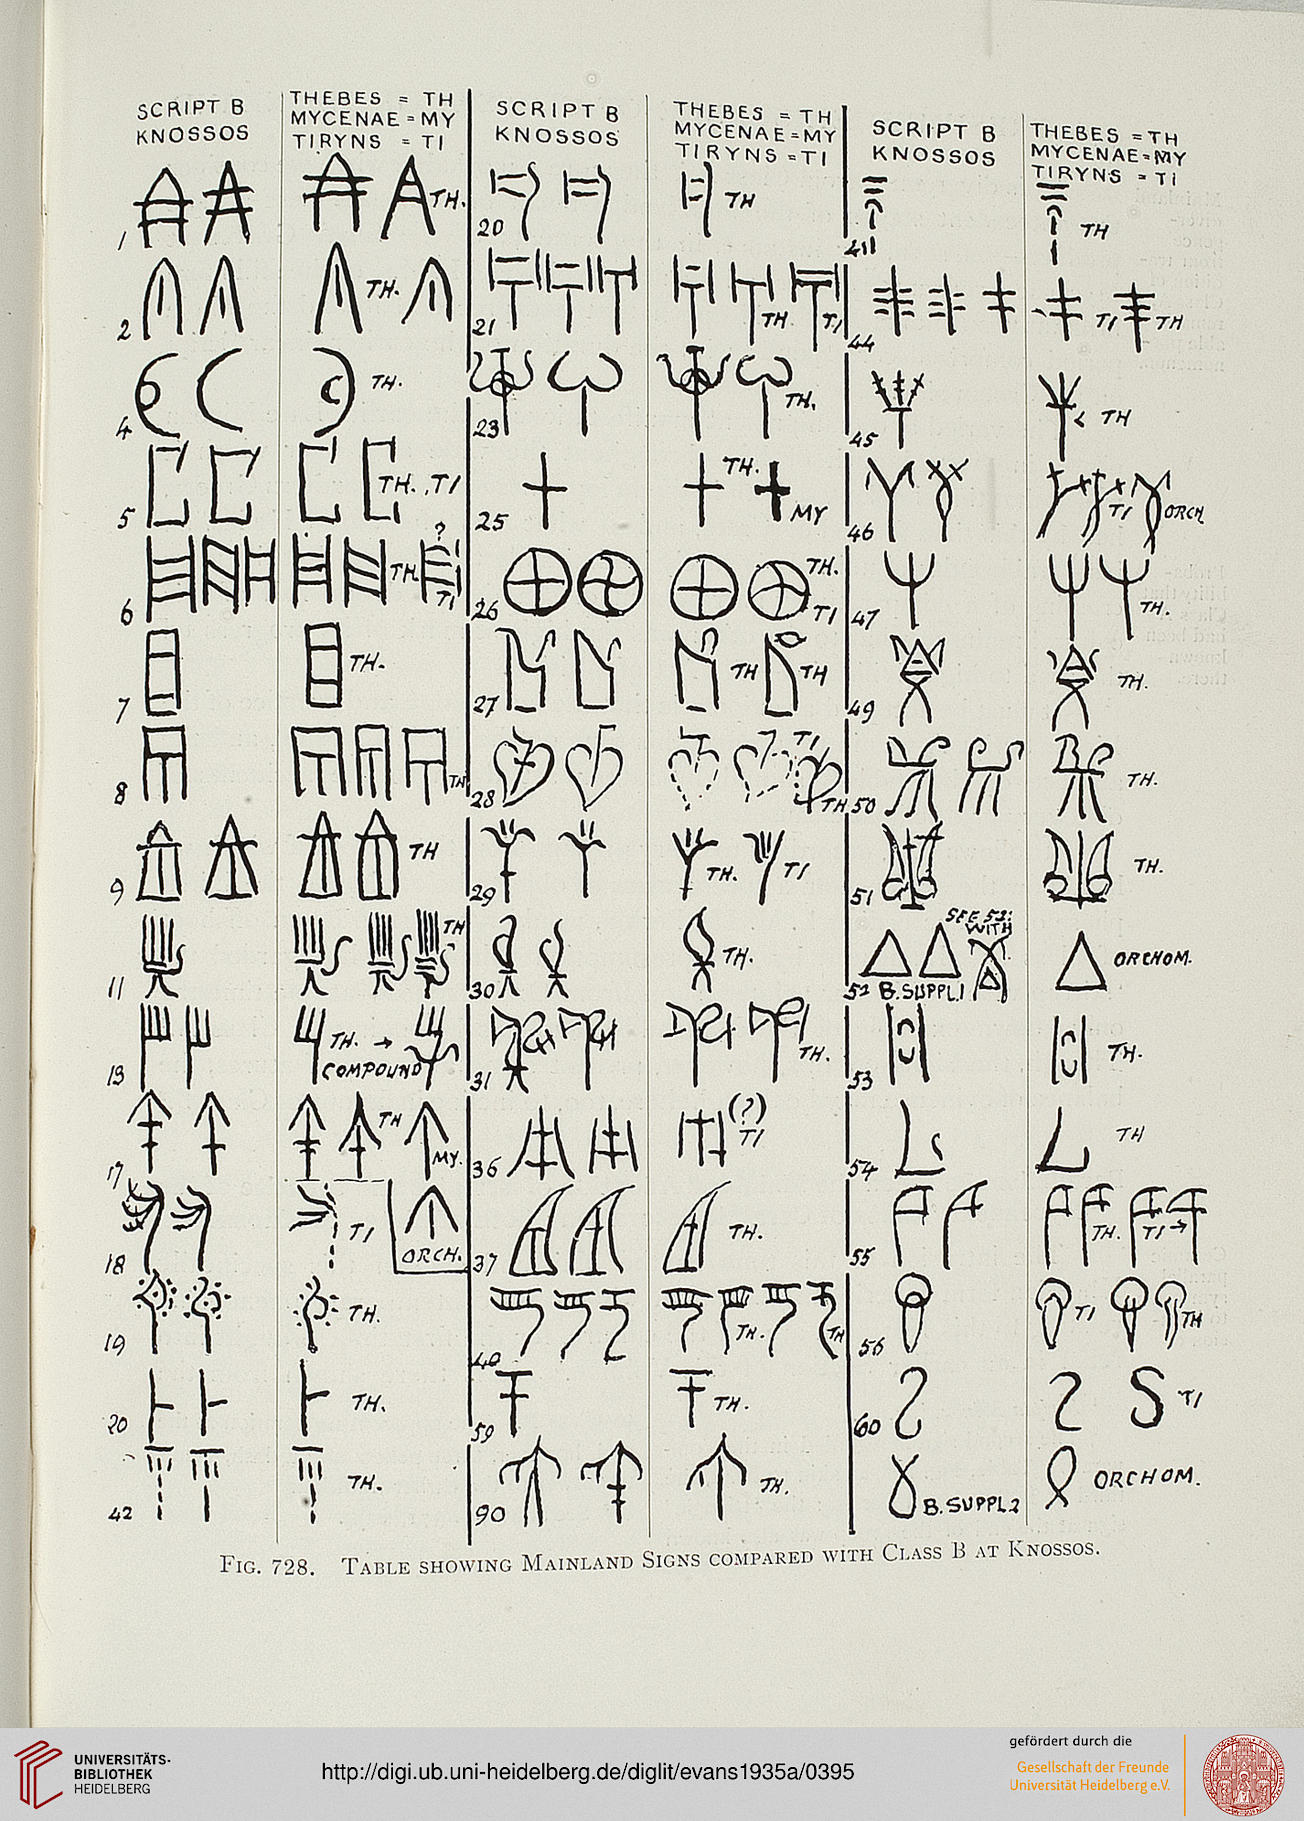 SCRIPT B
KNOSSOS
THEBES = TH
MYCENAE = MY
TIRYNS = TI
1
TH.
2
TH.
4
TH.
5
TH. , TI
6
TH.
?
TI
7
TH.
8
TH
9
TH
11
TH
13
TH. →
COMPOUND
17
TH
MY.
18
TI
ORCH.
19
TH.
20
TH.
42
TH.
SCRIPT B
KNOSSOS
THEBES = TH
MYCENAE = MY
TIRYNS = TI
20
TH
21
TH
TI
23
TH.
25
TH.
MY
26
TH.
TI
27
TH
TH
28
TI
TH
29
TH.
TI
30
TH.
31
TH.
36
(?)
TI
37
TH.
40
TH.
TH
59
TH.
90
TH.
SCRIPT B
KNOSSOS
THEBES = TH
MYCENAE = MY
TIRYNS = TI
41
TH
44
TI
TH
45
TH
46
TI
ORCH.
47
TH.
49
TH.
50
TH.
51
TH.
SEE 51:
WITH
52 B.SUPPL.1
ORCHOM.
53
TH.
54
TH
55
TH.
TI →
56
TI
TH
60
TI
B.SUPPL2
ORCHOM.
FIG. 728. TABLE SHOWING MAINLAND SIGNS COMPARED WITH CLASS B AT KNOSSOS.
UNIVERSITÄTS-
BIBLIOTHEK
HEIDELBERG
http://digi.ub.uni-heidelberg.de/diglit/evans1935a/0395
gefördert durch die
Gesellschaft der Freunde
Universität Heidelberg e.V.